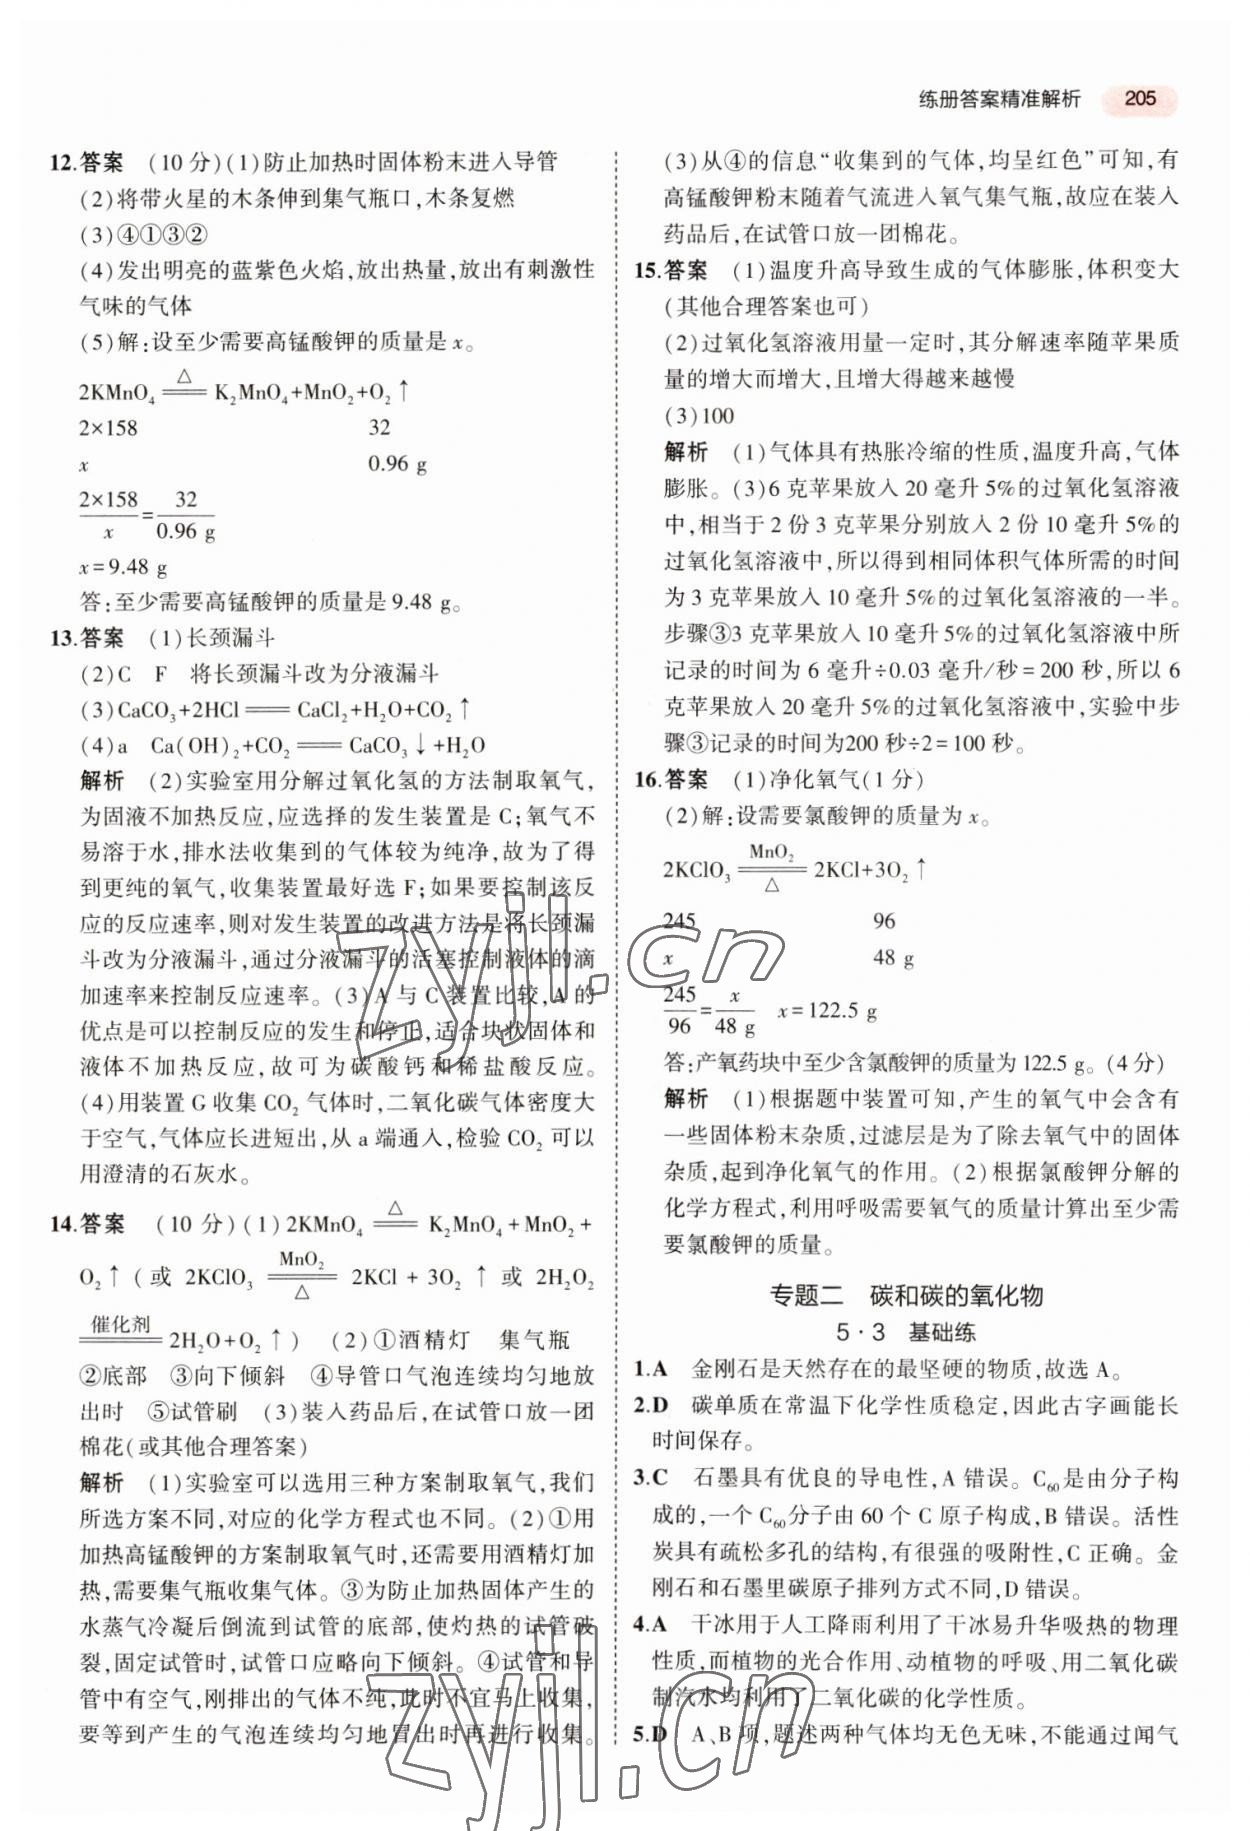 练册答案精准解析 205
12.答案 (10分)(1)防止加热时固体粉末进入导管
(2)将带火星的木条伸到集气瓶口,木条复燃
(3)④①③②
(4)发出明亮的蓝紫色火焰,放出热量,放出有刺激性
气味的气体
(5)解:设至少需要高锰酸钾的质量是x。
2KMnO₄ =△= K₂MnO₄+MnO₂+O₂↑
2×158 32
x 0.96 g
2×158/x=32/0.96 g
x=9.48 g
答:至少需要高锰酸钾的质量是9.48 g。
13.答案 (1)长颈漏斗
(2)C F 将长颈漏斗改为分液漏斗
(3)CaCO₃+2HCl══CaCl₂+H₂O+CO₂↑
(4)a Ca(OH)₂+CO₂══CaCO₃↓+H₂O
解析 (2)实验室用分解过氧化氢的方法制取氧气,
为固液不加热反应,应选择的发生装置是C;氧气不
易溶于水,排水法收集到的气体较为纯净,故为了得
到更纯的氧气,收集装置最好选F;如果要控制该反
应的反应速率,则对发生装置的改进方法是将长颈漏
斗改为分液漏斗,通过分液漏斗的活塞控制液体的滴
加速率来控制反应速率。(3)A与C装置比较,A的
优点是可以控制反应的发生和停止,适合块状固体和
液体不加热反应,故可为碳酸钙和稀盐酸反应。
(4)用装置G收集CO₂气体时,二氧化碳气体密度大
于空气,气体应长进短出,从a端通入,检验CO₂可以
用澄清的石灰水。
14.答案 (10分)(1)2KMnO₄ =△= K₂MnO₄+MnO₂+
O₂↑(或 2KClO₃ =MnO₂/△= 2KCl+3O₂↑ 或 2H₂O₂
=催化剂= 2H₂O+O₂↑) (2)①酒精灯 集气瓶
②底部 ③向下倾斜 ④导管口气泡连续均匀地放
出时 ⑤试管刷 (3)装入药品后,在试管口放一团
棉花(或其他合理答案)
解析 (1)实验室可以选用三种方案制取氧气,我们
所选方案不同,对应的化学方程式也不同。(2)①用
加热高锰酸钾的方案制取氧气时,还需要用酒精灯加
热,需要集气瓶收集气体。③为防止加热固体产生的
水蒸气冷凝后倒流到试管的底部,使灼热的试管破
裂,固定试管时,试管口应略向下倾斜。④试管和导
管中有空气,刚排出的气体不纯,此时不宜马上收集,
要等到产生的气泡连续均匀地冒出时再进行收集。
(3)从④的信息“收集到的气体,均呈红色”可知,有
高锰酸钾粉末随着气流进入氧气集气瓶,故应在装入
药品后,在试管口放一团棉花。
15.答案 (1)温度升高导致生成的气体膨胀,体积变大
(其他合理答案也可)
(2)过氧化氢溶液用量一定时,其分解速率随苹果质
量的增大而增大,且增大得越来越慢
(3)100
解析 (1)气体具有热胀冷缩的性质,温度升高,气体
膨胀。(3)6克苹果放入20毫升5%的过氧化氢溶液
中,相当于2份3克苹果分别放入2份10毫升5%的
过氧化氢溶液中,所以得到相同体积气体所需的时间
为3克苹果放入10毫升5%的过氧化氢溶液的一半。
步骤③3克苹果放入10毫升5%的过氧化氢溶液中所
记录的时间为6毫升÷0.03毫升/秒=200秒,所以6
克苹果放入20毫升5%的过氧化氢溶液中,实验中步
骤③记录的时间为200秒÷2=100秒。
16.答案 (1)净化氧气(1分)
(2)解:设需要氯酸钾的质量为x。
2KClO₃ =MnO₂/△= 2KCl+3O₂↑
245 96
x 48 g
245/96=x/48 g x=122.5 g
答:产氧药块中至少含氯酸钾的质量为122.5 g。(4分)
解析 (1)根据题中装置可知,产生的氧气中会含有
一些固体粉末杂质,过滤层是为了除去氧气中的固体
杂质,起到净化氧气的作用。(2)根据氯酸钾分解的
化学方程式,利用呼吸需要氧气的质量计算出至少需
要氯酸钾的质量。
专题二 碳和碳的氧化物
5·3 基础练
1.A 金刚石是天然存在的最坚硬的物质,故选A。
2.D 碳单质在常温下化学性质稳定,因此古字画能长
时间保存。
3.C 石墨具有优良的导电性,A错误。C₆₀是由分子构
成的,一个C₆₀分子由60个C原子构成,B错误。活性
炭具有疏松多孔的结构,有很强的吸附性,C正确。金
刚石和石墨里碳原子排列方式不同,D错误。
4.A 干冰用于人工降雨利用了干冰易升华吸热的物理
性质,而植物的光合作用、动植物的呼吸、用二氧化碳
制汽水均利用了二氧化碳的化学性质。
5.D A、B项,题述两种气体均无色无味,不能通过闻气
zyjl.cn
zyjl.cn